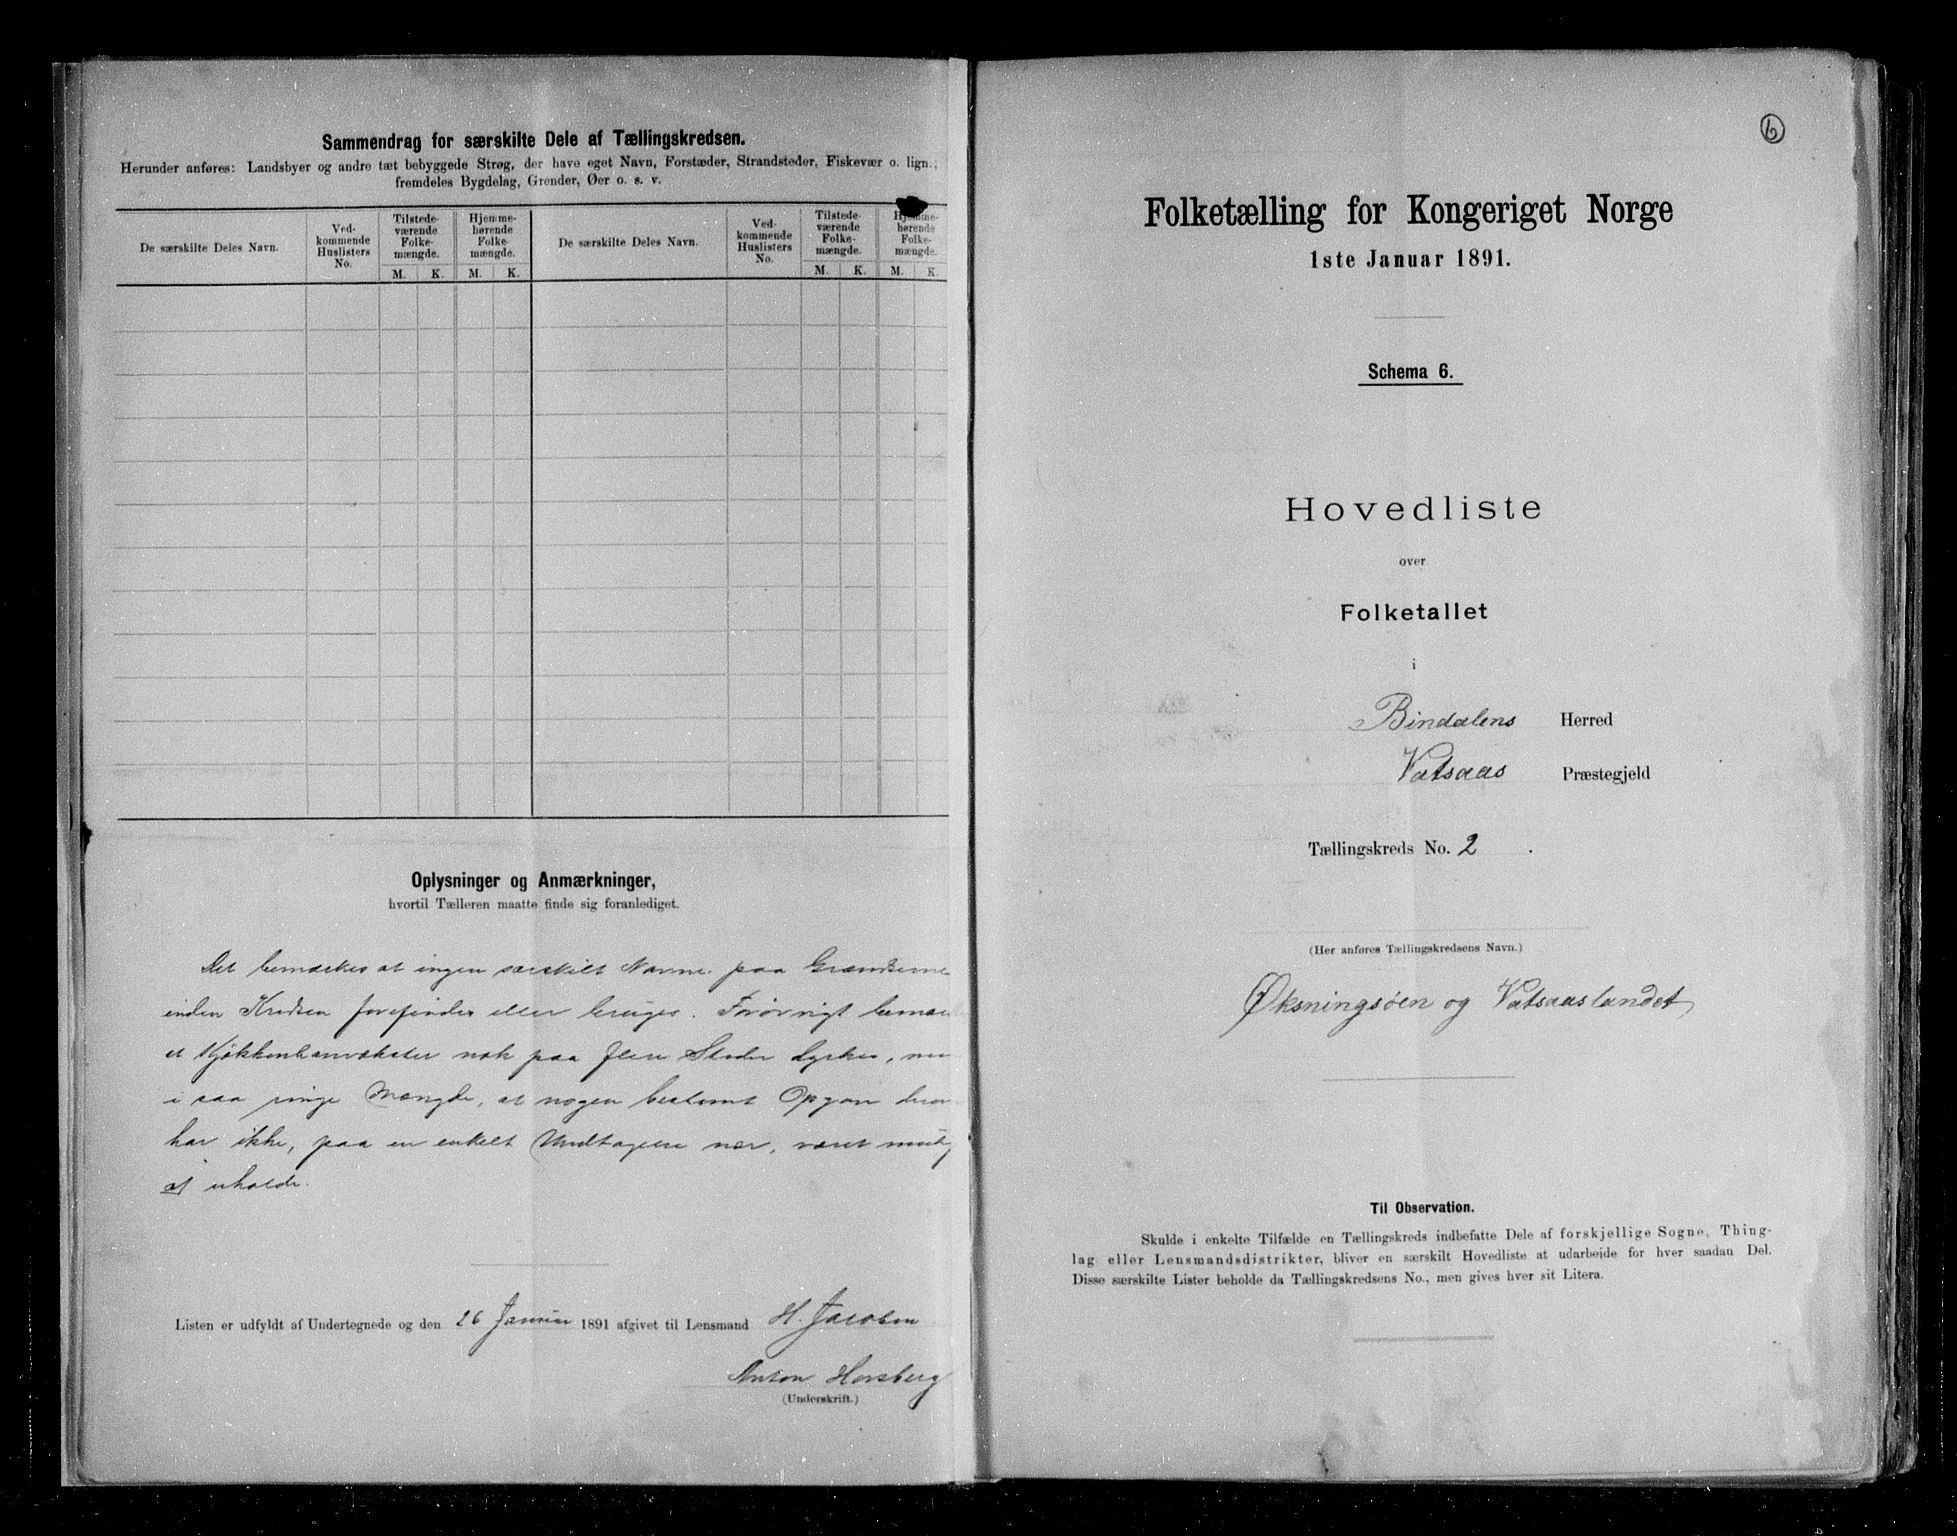 Sammendrag for særskilte Dele af Tællingskredsen.
Herunder anføres: Landsbyer og andre tæt bebyggede Strøg, der have eget Navn, Forstæder, Strandsteder, Fiskevær o. lign.;
fremdeles Bygdelag, Grender, Øer o. s. v.
De særskilte Deles Navn.
Ved-
kommende
Huslisters
No.
Tilstede-
værende
Folke-
mængde.
M. K.
Hjemme-
hørende
Folke-
mængde.
M. K.
De særskilte Deles Navn.
Ved-
kommende
Huslisters
No.
Tilstede-
værende
Folke-
mængde.
M. K.
Hjemme-
hørende
Folke-
mængde.
M. K.
Oplysninger og Anmærkninger,
hvortil Tælleren maatte finde sig foranlediget.
Det bemærkes at ingen særskilt Navne paa Grænderne
inden Kredsen forefindes eller bruges. Forøvrigt
at Kjøkkenhavevæxter nok paa flere Steder dyrkes, men
i saa ringe Mængde, at nogen bestemt Opgave
har ikke, paa en enkelt Undtagelse nær, været
at erholde.
Listen er udfyldt af Undertegnede og den 26 Januar 1891 afgivet til Lensmand H. Jacobsen
Anton Horsberg
(Underskrift.)
6
Folketælling for Kongeriget Norge
1ste Januar 1891.
Schema 6.
Hovedliste
over
Folketallet
i
Bindalens Herred
Vatsaas Præstegjeld
Tællingskreds No. 2 .
(Her anføres Tællingskredsens Navn.)
Øksningsøen og Vatsaaslandet
Til Observation.
Skulde i enkelte Tilfælde en Tællingskreds indbefatte Dele af forskjellige Sogne, Thing-
lag eller Lensmandsdistrikter, bliver en særskilt Hovedliste at udarbeide for hver saadan Del.
Disse særskilte Lister beholde da Tællingskredsens No., men gives hver sit Litera.